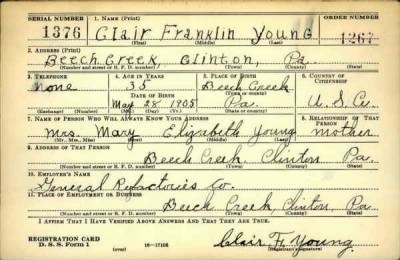 SERIAL NUMBER 1. NAME (Print) ORDER NUMBER
1376 Clair Franklin Young 1267
(First) (Middle) (Last)
2. ADDRESS (Print)
Beech Creek, Clinton, Pa.
(Number and street or R. F. D. number) (Town) (County) (State)
3. TELEPHONE 4. AGE IN YEARS 5. PLACE OF BIRTH 6. COUNTRY OF CITIZENSHIP
None 35 Beech Creek
DATE OF BIRTH (Town or county)
May 28 1905 Pa. U. S. A.
(Exchange) (Number) (Mo.) (Day) (Yr.) (State or country)
7. NAME OF PERSON WHO WILL ALWAYS KNOW YOUR ADDRESS 8. RELATIONSHIP OF THAT PERSON
Mrs. Mary Elizabeth Young mother
(Mr., Mrs., Miss) (First) (Middle) (Last)
9. ADDRESS OF THAT PERSON
Beech Creek Clinton Pa.
(Number and street or R. F. D. number) (Town) (County) (State)
10. EMPLOYER'S NAME
General Refactories Co.
11. PLACE OF EMPLOYMENT OR BUSINESS
Beech Creek, Clinton, Pa.
(Number and street or R. F. D. number) (Town) (County) (State)
I AFFIRM THAT I HAVE VERIFIED ABOVE ANSWERS AND THAT THEY ARE TRUE.
REGISTRATION CARD
D. S. S. Form 1 (over) 16—17105 Clair F. Young
(Registrant's signature)